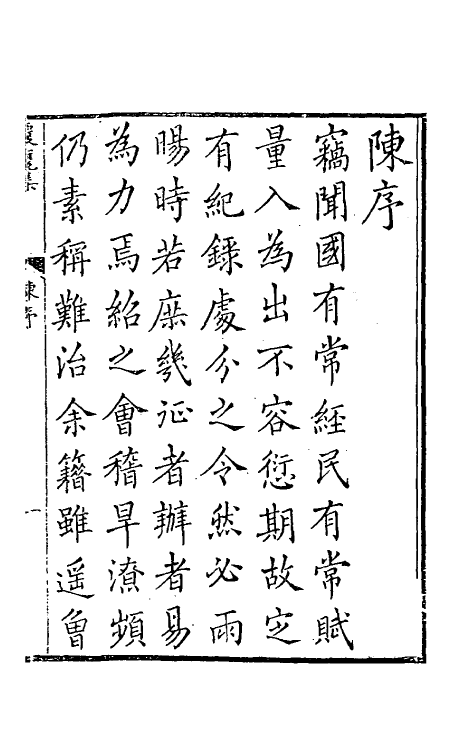 陳序
竊聞國有常經民有常賦
量入為出不容愆期故定
有紀錄處分之令然必雨
暘時若庶幾征者辦者易
為力焉紹之會稽旱潦頻
仍素稱難治余籍雖遥魯
陳序
一